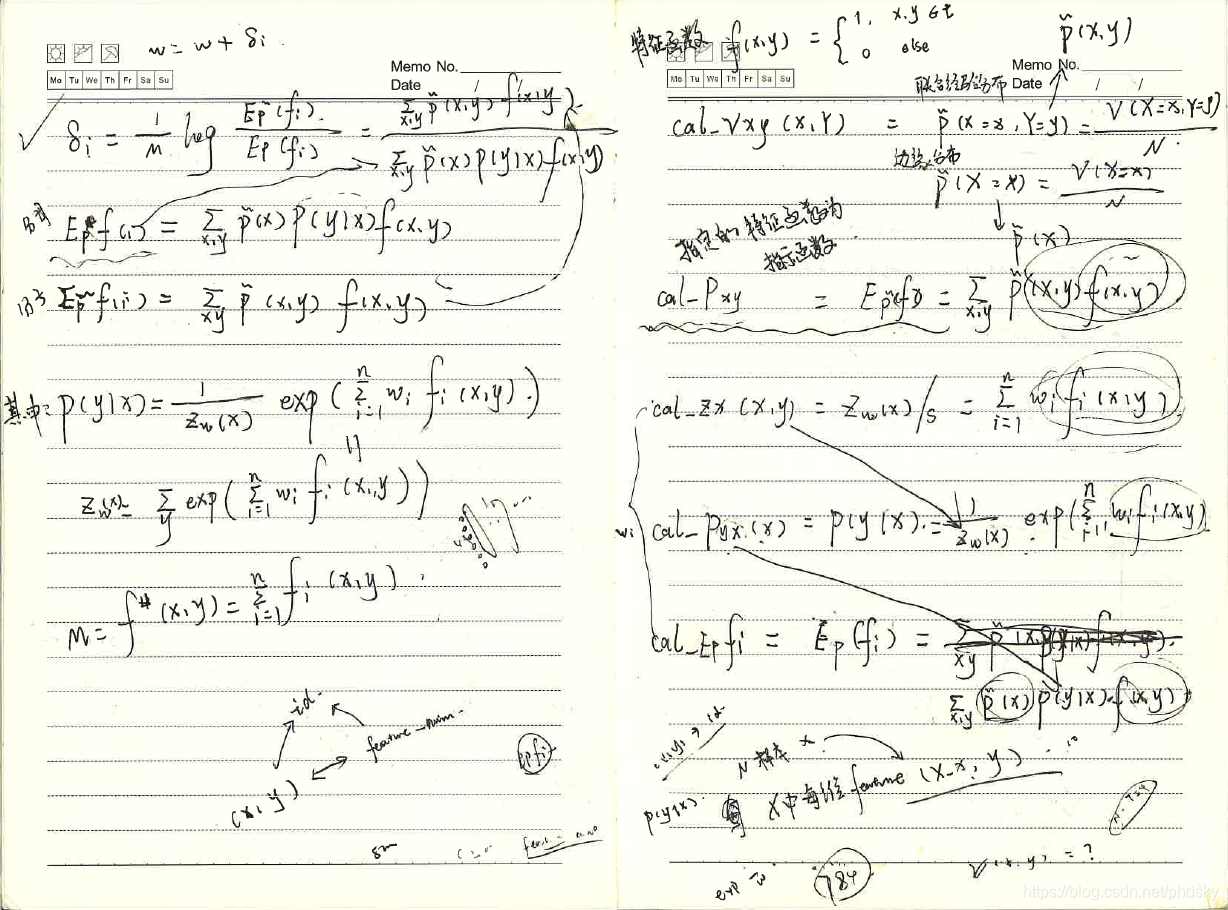 w = w + δi
Memo No.
Mo Tu We Th Fr Sa Su
Date / /
δi = 1/M log Ep̃(fi)/Ep(fi) = Σx,y p̃(x,y) f(x,y) / Σx,y p̃(x) p(y|x) f(x,y)
Ep f(i) = Σx,y p̃(x) p(y|x) f(x,y)
Ep̃ f(i) = Σxy p̃(x,y) f(x,y)
其中: p(y|x) = 1/Zw(x) exp(Σi=1n wi fi(x,y))
Zw(x) = Σy exp(Σi=1n wi fi(x,y))
M = f#(x,y) = Σi=1n fi(x,y)
id
feature-num
(x,y)
epfi
特征函数 f(x,y) = { 1, x,y ∈
0 else
p̃(x,y)
Memo No.
Mo Tu We Th Fr Sa Su
Date / /
联合经验分布
cal_Vxy(x,Y) = p̃(X=x, Y=y) = V(X=x,Y=y)/N
边缘分布
p̃(X=x) = V(X=x)/N
p̃(x)
指定的特征函数为
指示函数
cal_Pxy = Ep̃(f) = Σx,y p̃(x,y) f(x,y)
cal_Zx(x,y) = Zw(x)/s = Σi=1n wi fi(x,y)
wi
cal_pyx(x) = p(y|x) = 1/Zw(x) exp(Σi=1n wi fi(x,y)
cal_Epfi = Ep(fi) = Σxy p̃(x) p(y|x) f(x,y)
Σx,y p̃(x) p(y|x) f(x,y)
(x,y) → id
N 样本 x
p(y|x)
X中每维 feature (X=x, y)
exp w
784
V(x,y) = ?
https://blog.csdn.net/phdsky